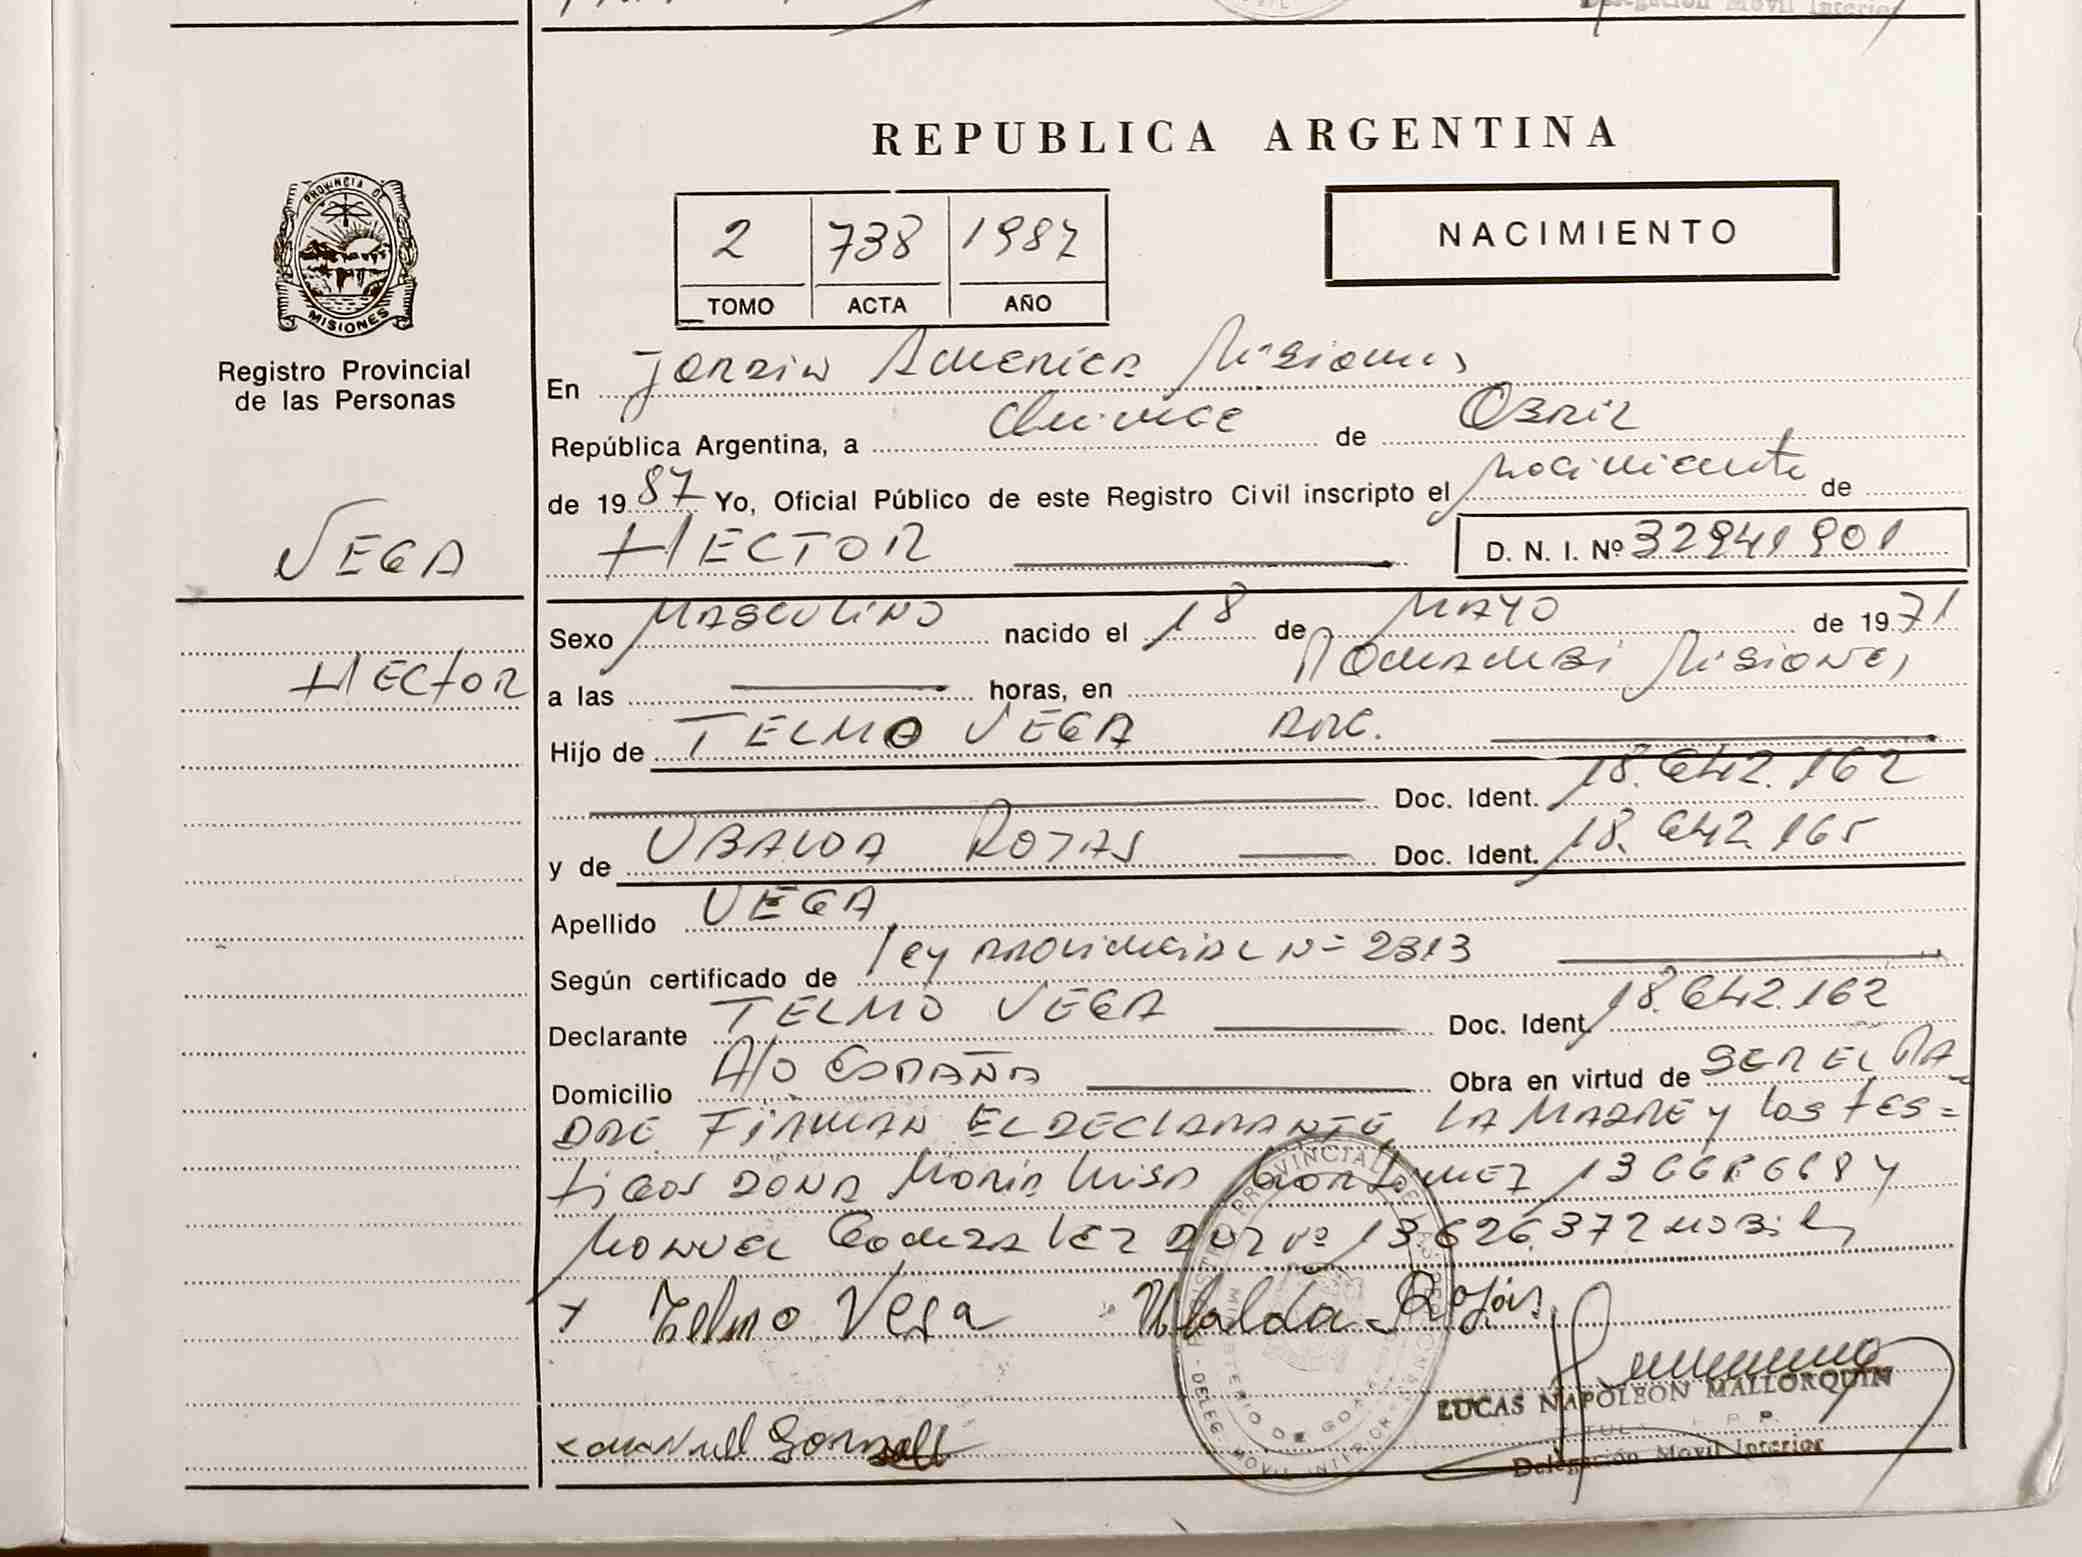 Delegación Movil Interior
REPUBLICA ARGENTINA
PROVINCIA DE
MISIONES
Registro Provincial
de las Personas
2 738 1987
TOMO ACTA AÑO
NACIMIENTO
En Jardin America Misiones
República Argentina, a Quince de Abril
de 1987 Yo, Oficial Público de este Registro Civil inscripto el nacimiento de
VEGA
HECTOR D. N. I. Nº 32941901
Hector
Sexo MASCULINO nacido el 18 de MAYO de 1971
a las horas, en Misiones
Hijo de TELMO VEGA ARG.
Doc. Ident. 18.642.162
y de UBALDA ROJAS Doc. Ident. 18.642.165
Apellido VEGA
Según certificado de ley provincial Nº 2313
Declarante TELMO VEGA Doc. Ident. 18.642.162
Domicilio A/O ESPAÑA Obra en virtud de SER EL PA
DRE FIRMAN EL DECLARANTE, LA MADRE y los tes=
tigos DOÑA Maria Luisa Martinez y
Manuel Gonzalez DNI Nº 13.626.372
x Telmo Vega Ubalda Rojas
LUCAS NAPOLEON MALLORQUIN
Delegación Movil Interior